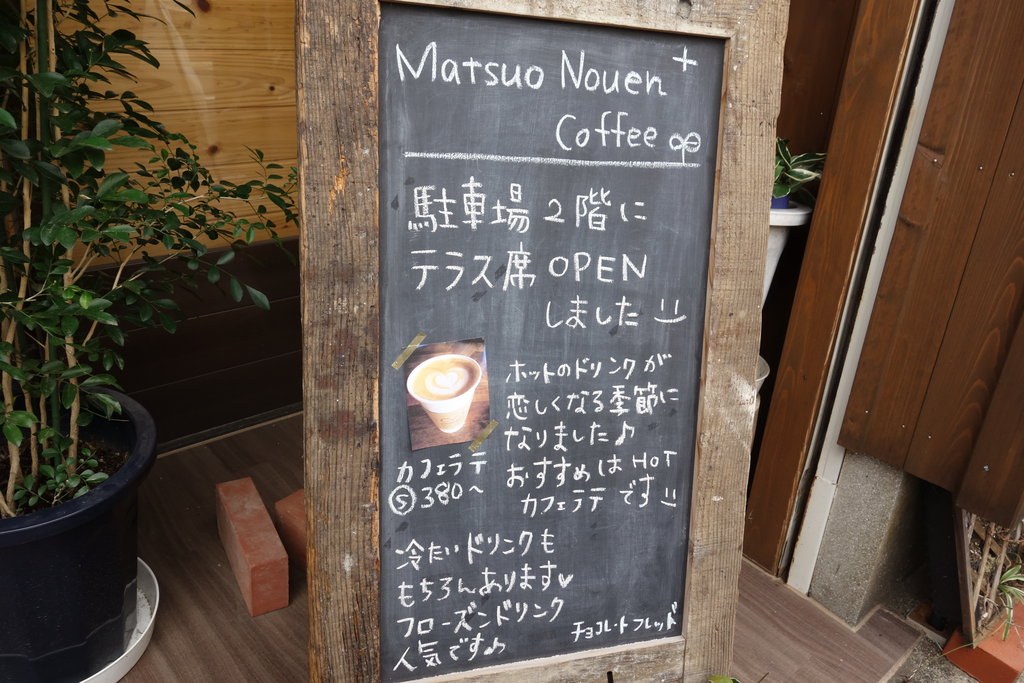 Matsuo Nouen +
Coffee
駐車場2階に
テラス席OPEN
しました
ホットのドリンクが
恋しくなる季節に
なりました♪
おすすめはHOT
カフェラテです
カフェラテ
Ⓢ380～
冷たいドリンクも
もちろんあります♥
フローズンドリンク
人気です♪
チョコレートフレッド